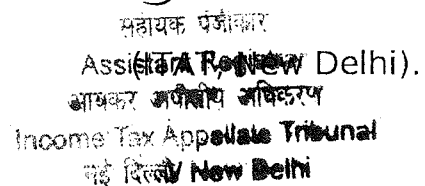 सहायक पंजीकार
Assistant Registrar
(ITAT, New Delhi).
आयकर अपीलीय अधिकरण
Income Tax Appellate Tribunal
नई दिल्ली/ New Delhi